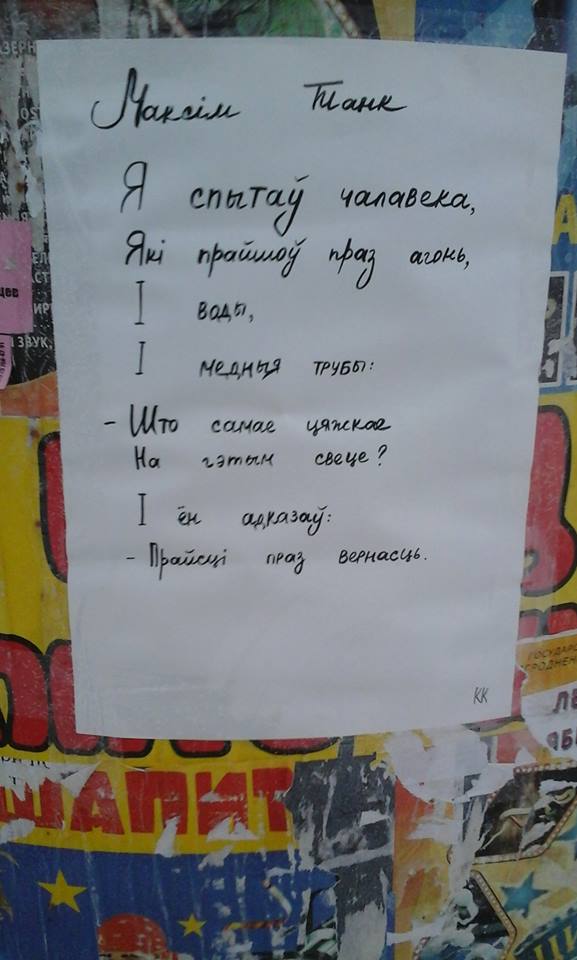 Максім Танк
Я спытаў чалавека,
Які прайшоў праз агонь,
І воды,
І медныя трубы:
- Што самае цяжкае
На гэтым свеце?
І ён адказаў:
- Прайсці праз вернасць.
КК
ЗВУК,
ШАПИТ